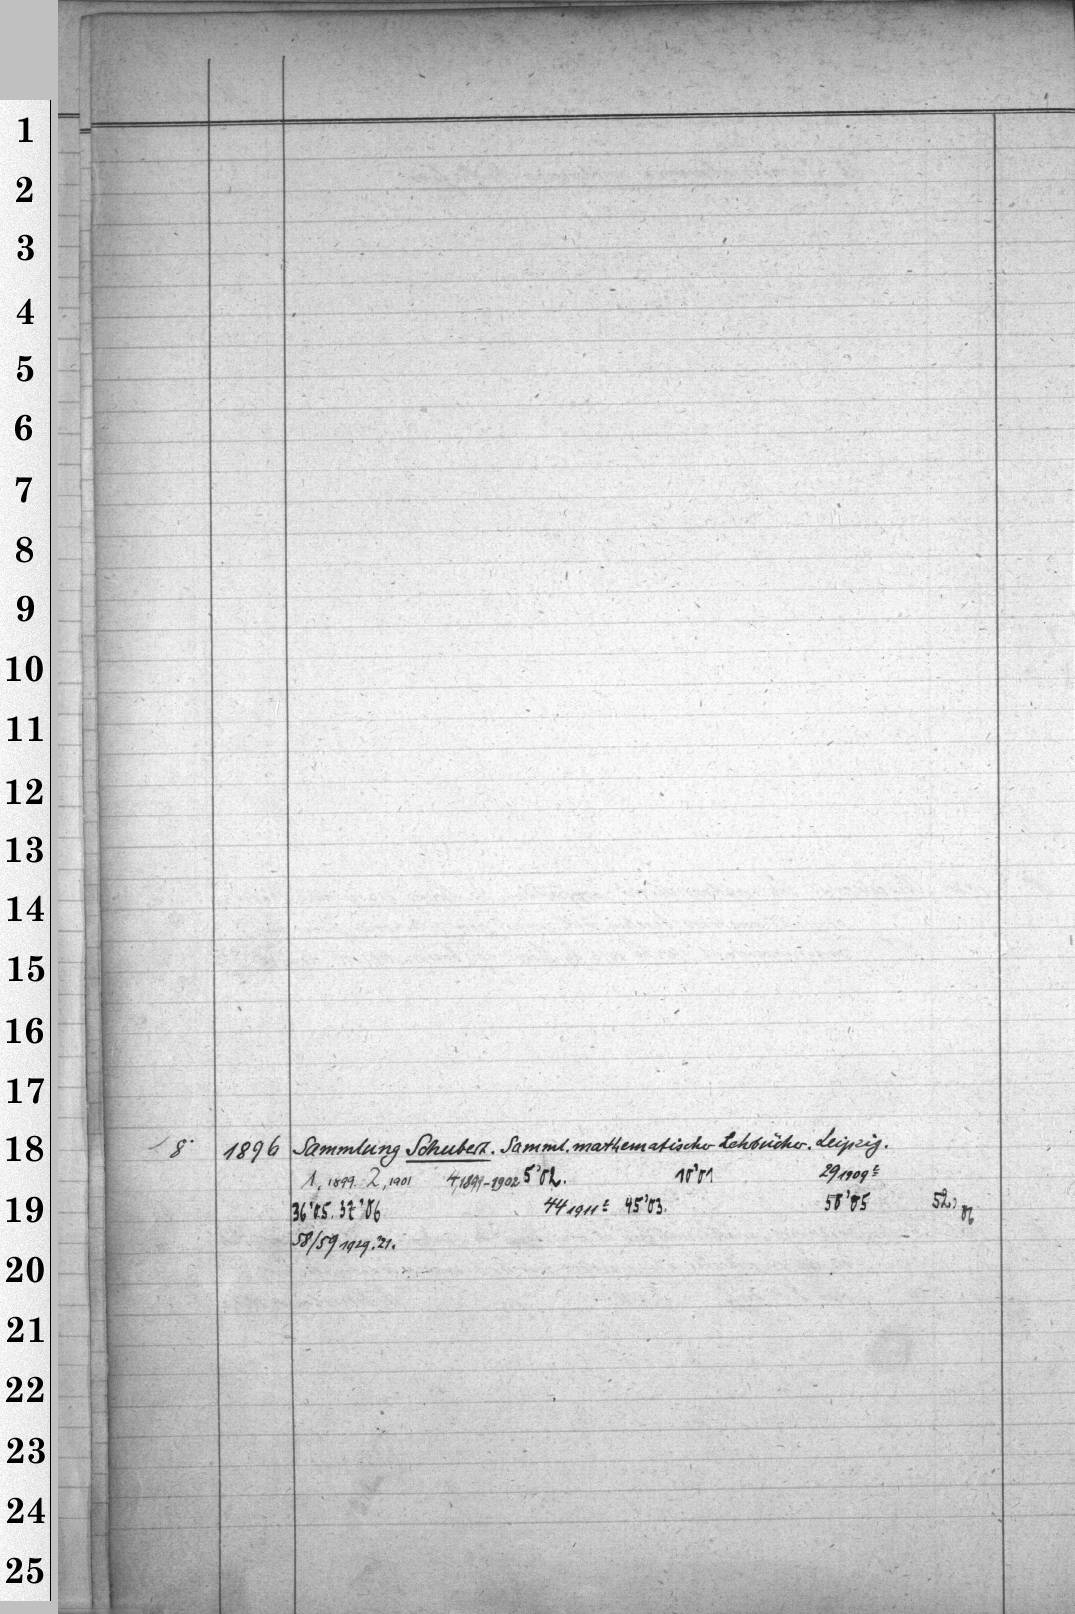 1
2
3
4
5
6
7
8
9
10
11
12
13
14
15
16
17
18
8° 1896 Sammlung Schubert. Samml. mathematischer Lehrbücher. Leipzig.
1, 1899. 2, 1901 4, 1899-1902 5'02. 10'01 29 1909
19
36'05. 37'06 44 1911 45'03. 50'05 52'06
58/59 1929.'21.
20
21
22
23
24
25